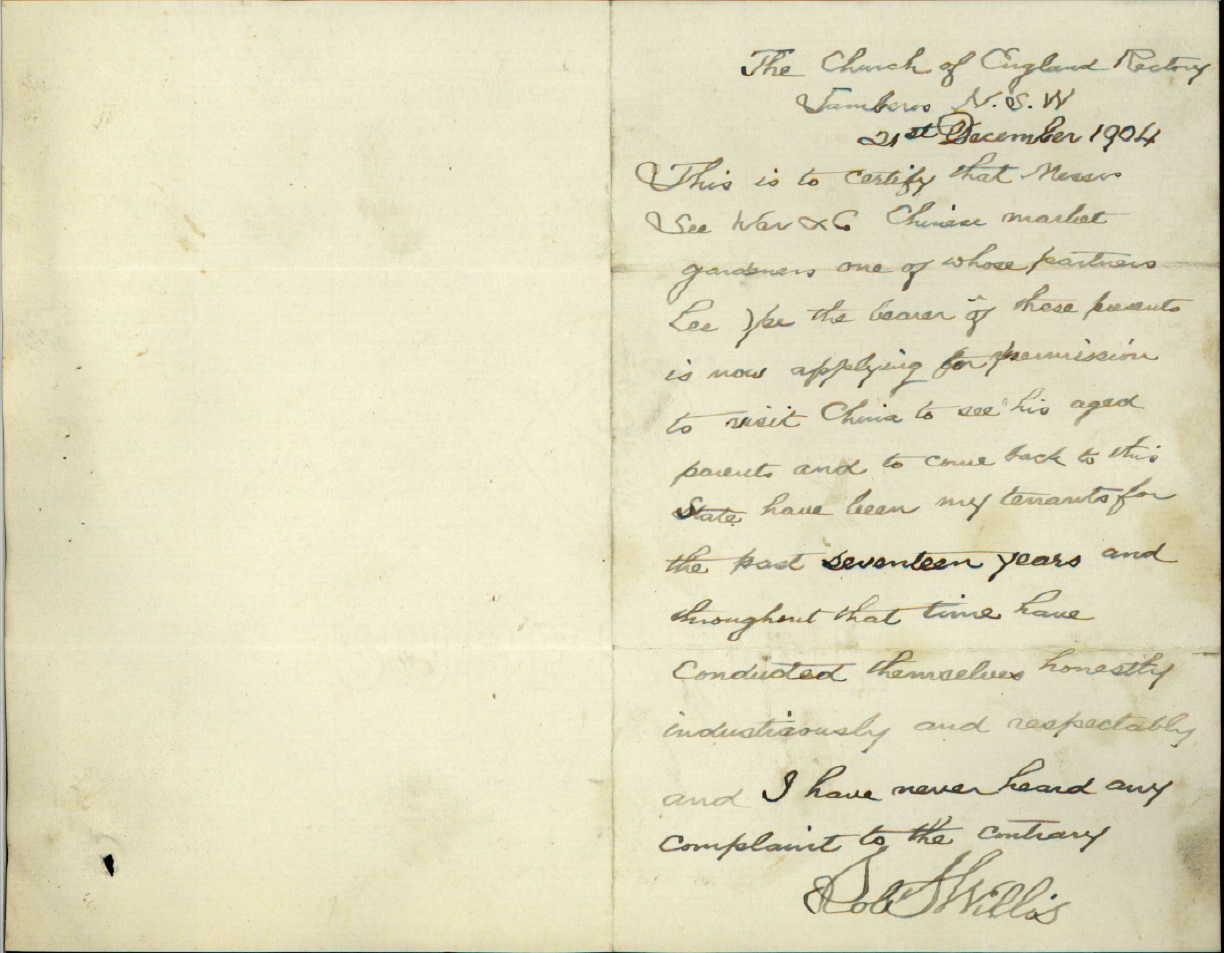 The Church of England Rectory
Jamberoo N.S.W
21st December 1904
This is to certify that Messrs
See War & Co Chinese market
gardeners one of whose partners
Lee Yee the bearer of these presents
is now applying for permission
to visit China to see his aged
parents and to come back to this
State have been my tenants for
the past seventeen years and
throughout that time have
conducted themselves honestly
industriously and respectably
and I have never heard any
complaint to the contrary
Robt Willis